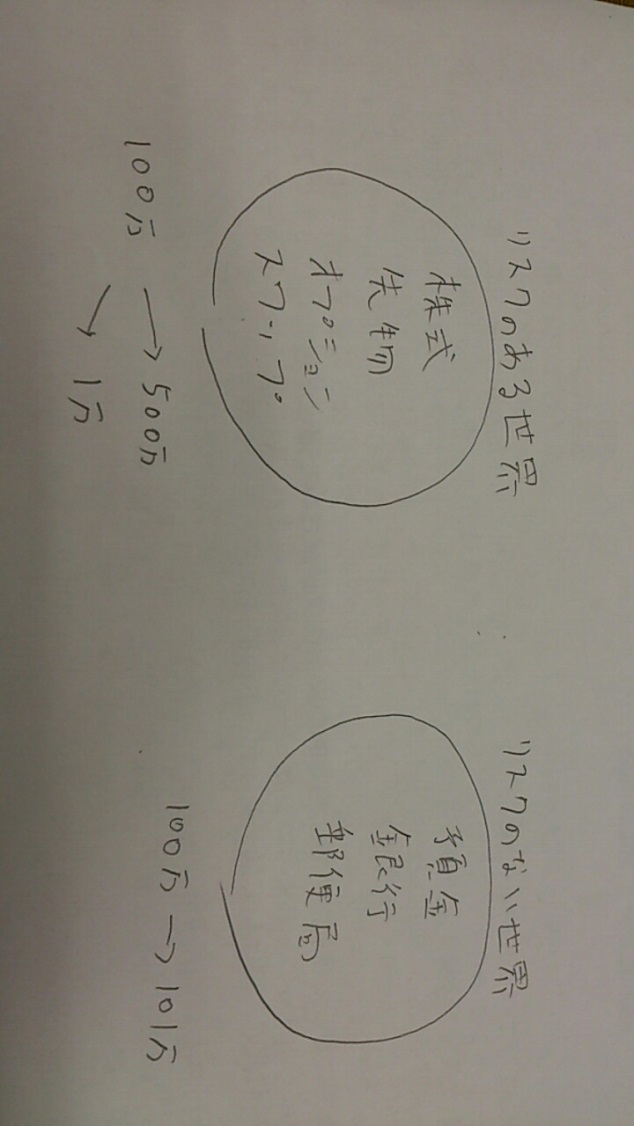 リスクのある世界
株式
先物
オプション
スワップ
100万 → 500万
↘ 1万
リスクのない世界
預金
銀行
郵便局
100万 → 101万